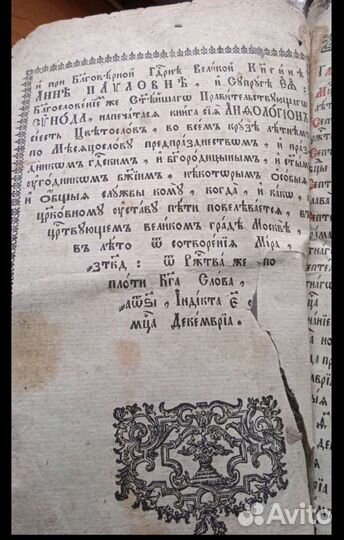 и҆ при Бл҃говѣрной Гдⷭ҇рнѣ Великой Кн҃гинѣ
АННѢ ПАѴЛОВНѢ, и҆ Сꙋпрꙋгѣ Е҆Ѧ̀:
Благословенїемъ же Ст҃ѣйшагѡ Правительствꙋющагѡ
СѴНОДА, напечатасѧ книга сїѧ АНѲОЛОГІОНЪ
сіесть Цвѣтословъ, во всемъ крꙋзѣ лѣтнѣмъ
по Мѣсѧцословꙋ предпразднествомъ, и праз
дникѡмъ гдⷭ҇скимъ, и бг҃ородичнымъ, и ст҃ымъ
ᲂугодникѡмъ бж҃їимъ, нѣкоторымъ ѻсобыѧ
и ѻбщыѧ слꙋжбы комꙋ, когда, и какѡ по
црк҃овномꙋ ᲂуставꙋ пѣти повелѣваетсѧ, въ
црⷭ҇твꙋющемъ великомъ градѣ Москвѣ,
въ лѣто ѿ сотворенїѧ Міра,
҂зтк҃д: ѿ Рж҇тва же по
плоти Бг҃а Слова,
҂аѿ҃ѕі, Індікта є҃
мц҃а Декемврїа.
Avito